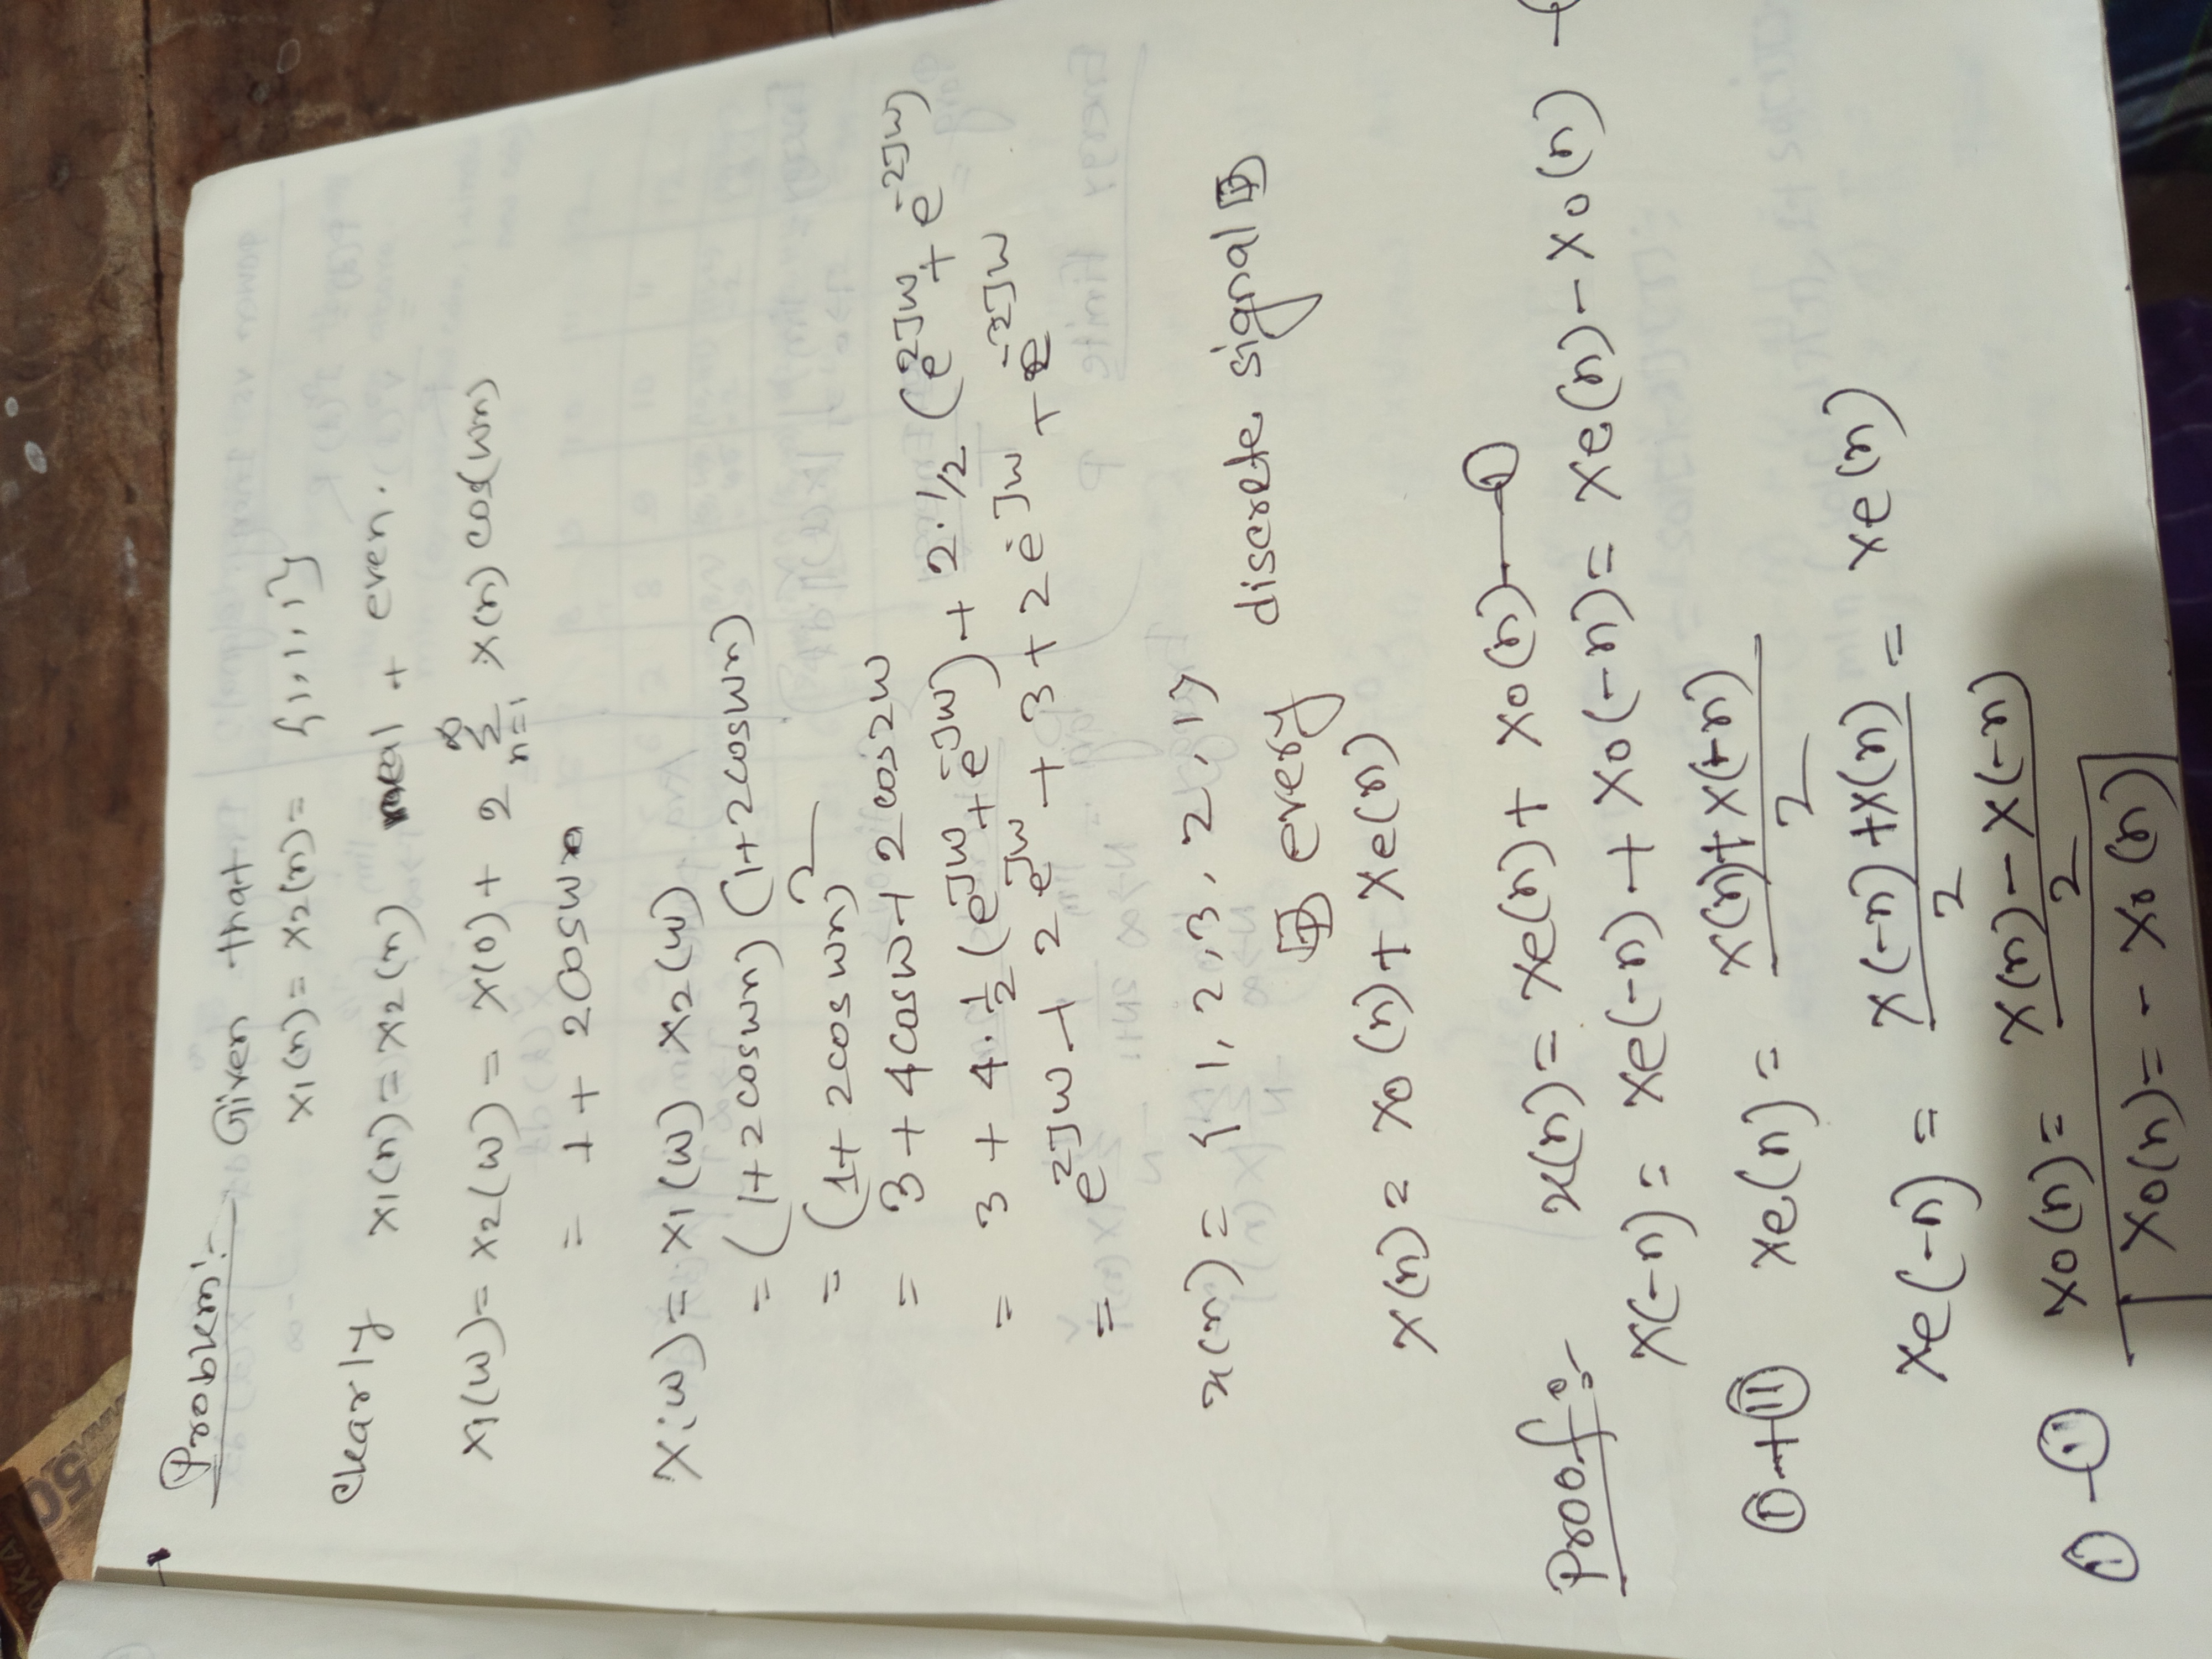 Problem:- Given that
x1(n) = x2(n) = {1, 1, 1}
Clearly x1(n) = x2(n) real + even.
X1(w) = X2(w) = x(0) + 2 ∞Σn=1 x(n) cos(wn)
= 1 + 2cosw
X(w) = X1(w) X2(w)
= (1+2coswn) (1+2coswn)
= (1+2coswn)²
= 3 + 4cosw + 2cos2w
= 3 + 4·1/2 (e^jw + e^-jw) + 2·1/2 (e^2jw + e^-2jw)
= e^2jw + 2e^jw + 3 + 2e^-jw + e^-2jw
x(n) = {1, 2, 3, 2, 1}
every discrete signal
x(n) = xo(n) + xe(n)
Proof:- x(n) = xe(n) + xo(n) — ①
x(-n) = xe(-n) + xo(-n) = xe(n) - xo(n) —
① + ⑪ xe(n) = x(n) + x(-n) / 2
xe(-n) = x(-n) + x(n) / 2 = xe(n)
① - ⑪ xo(n) = x(n) - x(-n) / 2
xo(n) = - xo(n)